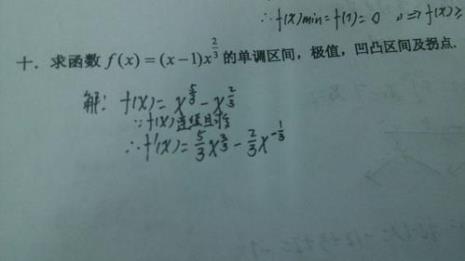 ∴f(x)min=f(1)=0 ∴⇒f(x)≥
十. 求函数 f(x)=(x−1)x^{2/3} 的单调区间, 极值, 凹凸区间及拐点.
解: f(x)=x^{5/3}−x^{2/3}
∵f(x)连续且可导
∴f'(x)=5/3x^{2/3}−2/3x^{-1/3}